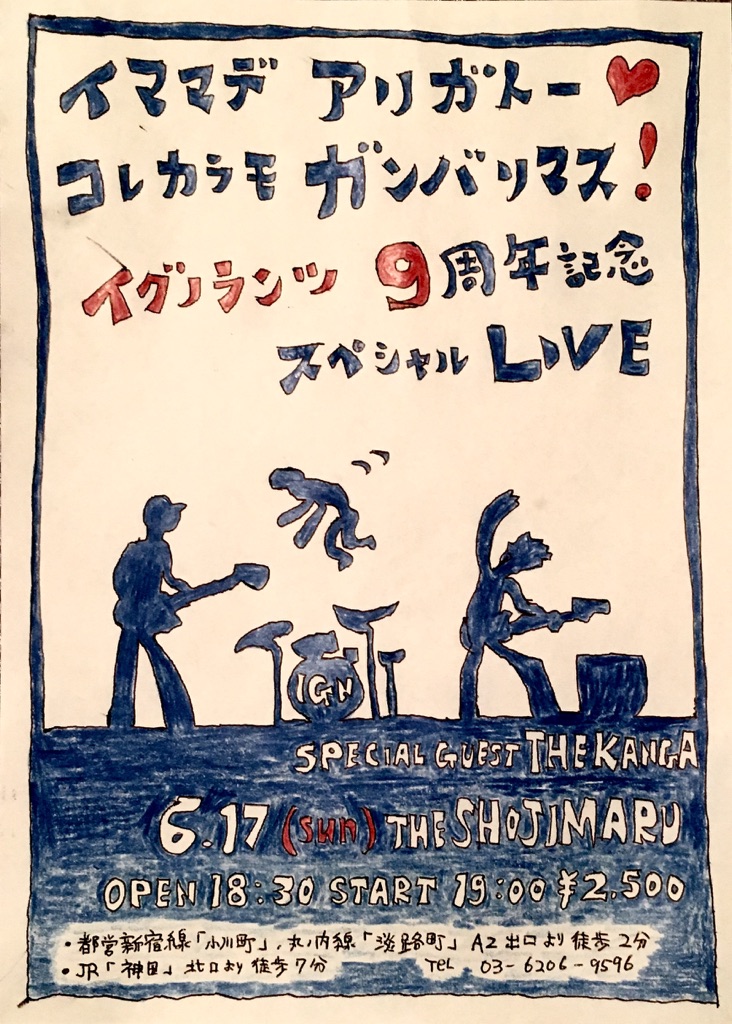 イママデ アリガトー♥
コレカラモ ガンバリマス!
イグノランツ 9周年記念
スペシャル LIVE
IGN
SPECIAL GUEST THE KANGA
6.17(sun) THE SHOJIMARU
OPEN 18:30 START 19:00 ¥2,500
・都営新宿線「小川町」、丸ノ内線「淡路町」 A2出口より徒歩2分
・JR「神田」北口より徒歩7分 TEL 03-6206-9596